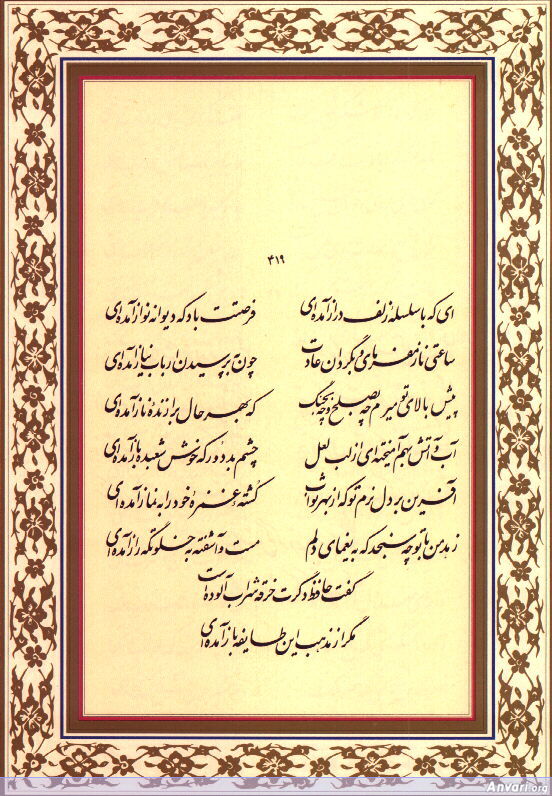 ۴۱۹
ای که با سلسله زلف دراز آمده‌ای فرصتت باد که دیوانه نواز آمده‌ای
ساعتی ناز مفرمای و بگردان عادت چون به پرسیدن ارباب نیاز آمده‌ای
پیش بالای تو میرم چه به صلح و چه به جنگ که بهر حال برازنده ناز آمده‌ای
آب و آتش بهم آمیخته‌ای از لب لعل چشم بد دور که خوش شعبده باز آمده‌ای
آفرین بر دل نرم تو که از بهر ثواب کشته غمزه خود را به نماز آمده‌ای
زهد من با تو چه سنجد که به یغمای دلم مست و آشفته به خلوتگه راز آمده‌ای
گفت حافظ دگرت خرقه شراب آلوده است
مگر از مذهب این طایفه باز آمده‌ای
Anvari.org